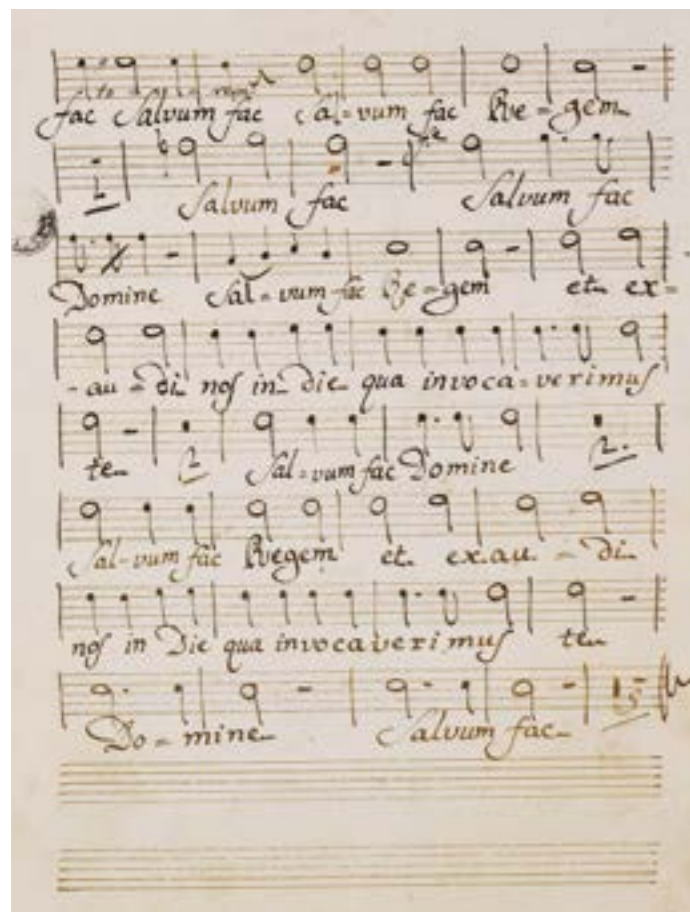 fac Salvum fac Sal-vum fac Re-gem
1 Salvum fac Salvum fac
Domine Sal-vum fac Re-gem et ex-
-au-di nos in die qua invoca-verimus
te 2 Sal-vum fac Domine 2.
Sal-vum fac Regem et exau-di
nos in Die qua invocaverimus te
Do-mine Salvum fac 15